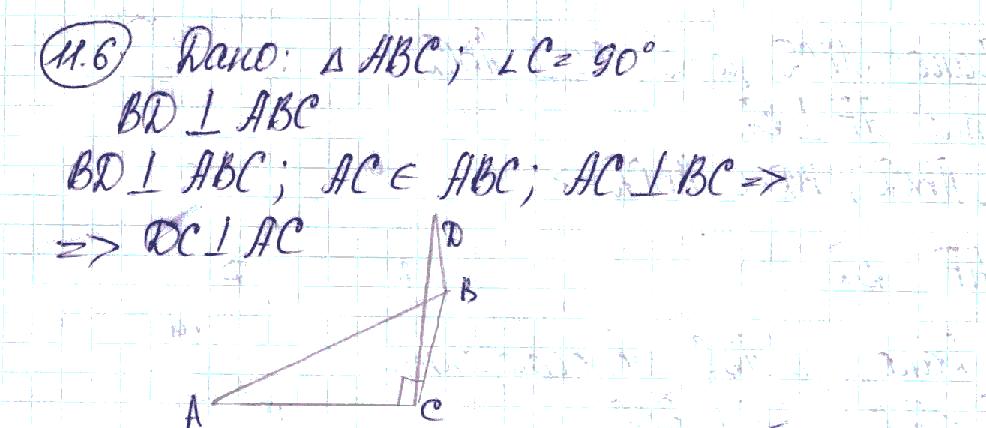 11.6 Дано: △ ABC; ∠C = 90°
BD ⊥ ABC
BD ⊥ ABC; AC ∈ ABC; AC ⊥ BC =>
=> DC ⊥ AC
D
B
A
C